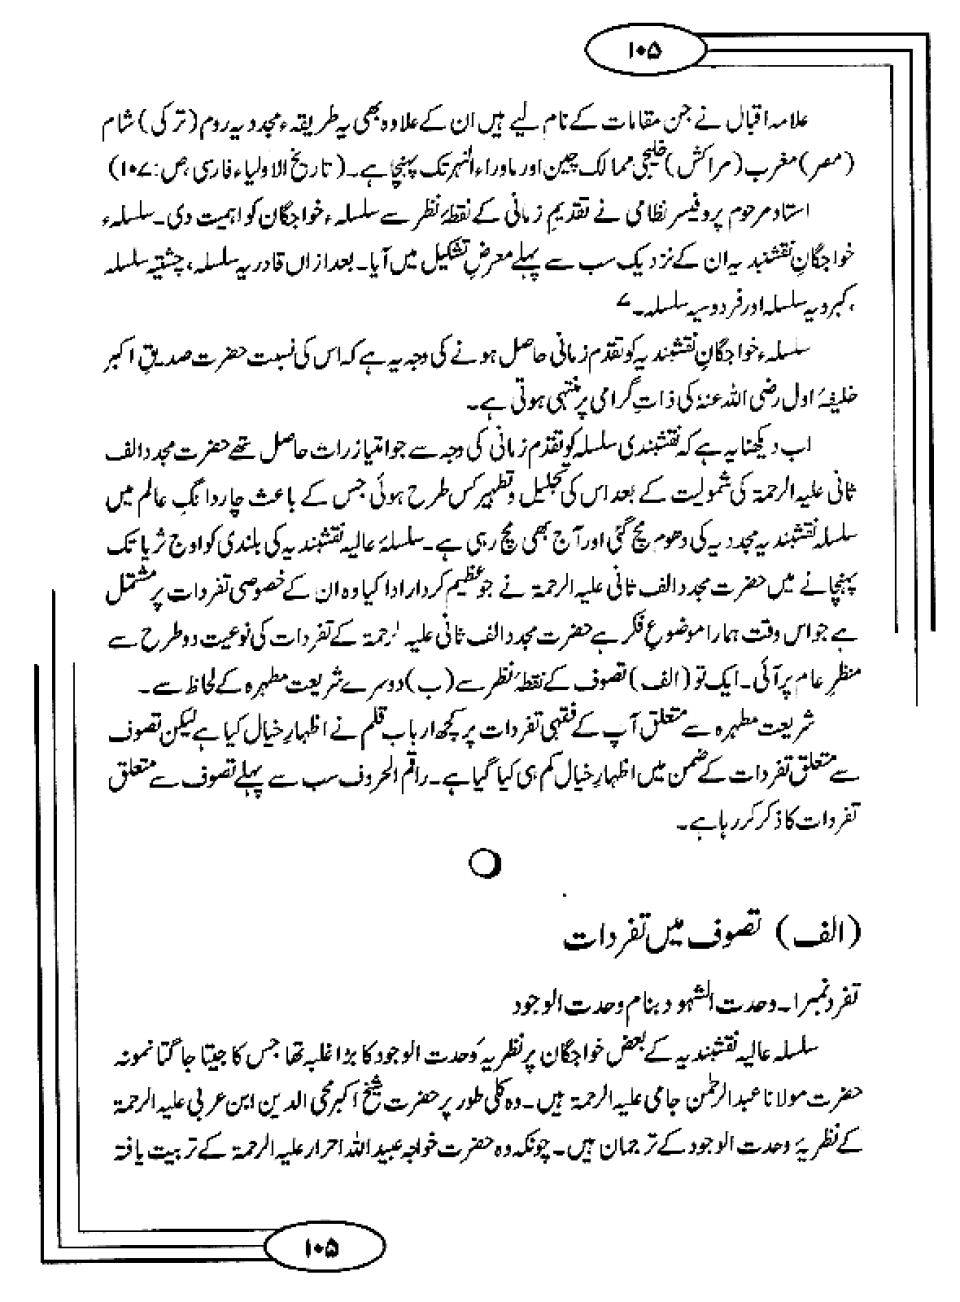 ۱۰۵
علامہ اقبال نے جن مقامات کے نام لیے ہیں ان کے علاوہ بھی یہ طریقہء مجددیہ روم (ترکی) شام
(مصر) مغرب (مراکش) خلیجی ممالک چین اور ماوراءالنہر تک پہنچا ہے۔ (تاریخ الاولیاء فارسی ص: ۱۰۷)
استاد مرحوم پروفیسر نظامی نے تقدیم زمانی کے نقطۂ نظر سے سلسلہء خواجگان کو اہمیت دی۔ سلسلہء
خواجگانِ نقشبندیہ ان کے نزدیک سب سے پہلے معرضِ تشکیل میں آیا۔ بعد ازاں قادریہ سلسلہ، چشتیہ سلسلہ
، کبرویہ سلسلہ اور فردوسیہ سلسلہ۔ ے
سلسلہء خواجگانِ نقشبندیہ کو تقدم زمانی حاصل ہونے کی وجہ یہ ہے کہ اس کی نسبت حضرت صدیقِ اکبر
خلیفۂ اول رضی اللہ عنہٗ کی ذاتِ گرامی پر منتہی ہوتی ہے۔
اب دیکھنا یہ ہے کہ نقشبندی سلسلہ کو تقدّم زمانی کی وجہ سے جو امتیازرات حاصل تھے حضرت مجدد الف
ثانی علیہ الرحمۃ کی شمولیت کے بعد اس کی تجلیل و تطہیر کس طرح ہوئی جس کے باعث چار دانگِ عالم میں
سلسلہ نقشبندیہ مجددیہ کی دھوم مچ گئی اور آج بھی مچ رہی ہے۔ سلسلۂ عالیہ نقشبندیہ کی بلندی کو اوج ثریا تک
پہنچانے میں حضرت مجدد الف ثانی علیہ الرحمۃ نے جو عظیم کردار ادا کیا وہ ان کے خصوصی تفردات پر مشتمل
ہے جو اس وقت ہمارا موضوعِ فکر ہے حضرت مجدد الف ثانی علیہ الرحمۃ کے تفردات کی نوعیت دو طرح سے
منظرِ عام پر آئی۔ ایک تو (الف) تصوف کے نقطۂ نظر سے (ب) دوسرے شریعت مطہرہ کے لحاظ سے۔
شریعت مطہرہ سے متعلق آپ کے فقہی تفردات پر کچھ ارباب قلم نے اظہارِ خیال کیا ہے لیکن تصوف
سے متعلق تفردات کے ضمن میں اظہارِ خیال کم ہی کیا گیا ہے۔ راقم الحروف سب سے پہلے تصوف سے متعلق
تفردات کا ذکر کر رہا ہے۔
(الف) تصوف میں تفردات
تفرد نمبر ۱۔ وحدت الشہود بنام وحدت الوجود
سلسلہ عالیہ نقشبندیہ کے بعض خواجگان پر نظریۂ وحدت الوجود کا بڑا غلبہ تھا جس کا جیتا جاگتا نمونہ
حضرت مولانا عبدالرحمٰن جامی علیہ الرحمۃ ہیں۔ وہ کلی طور پر حضرت شیخ اکبر محی الدین ابن عربی علیہ الرحمۃ
کے نظریۂ وحدت الوجود کے ترجمان ہیں۔ چونکہ وہ حضرت خواجہ عبیداللہ احرار علیہ الرحمۃ کے تربیت یافتہ
۱۰۵